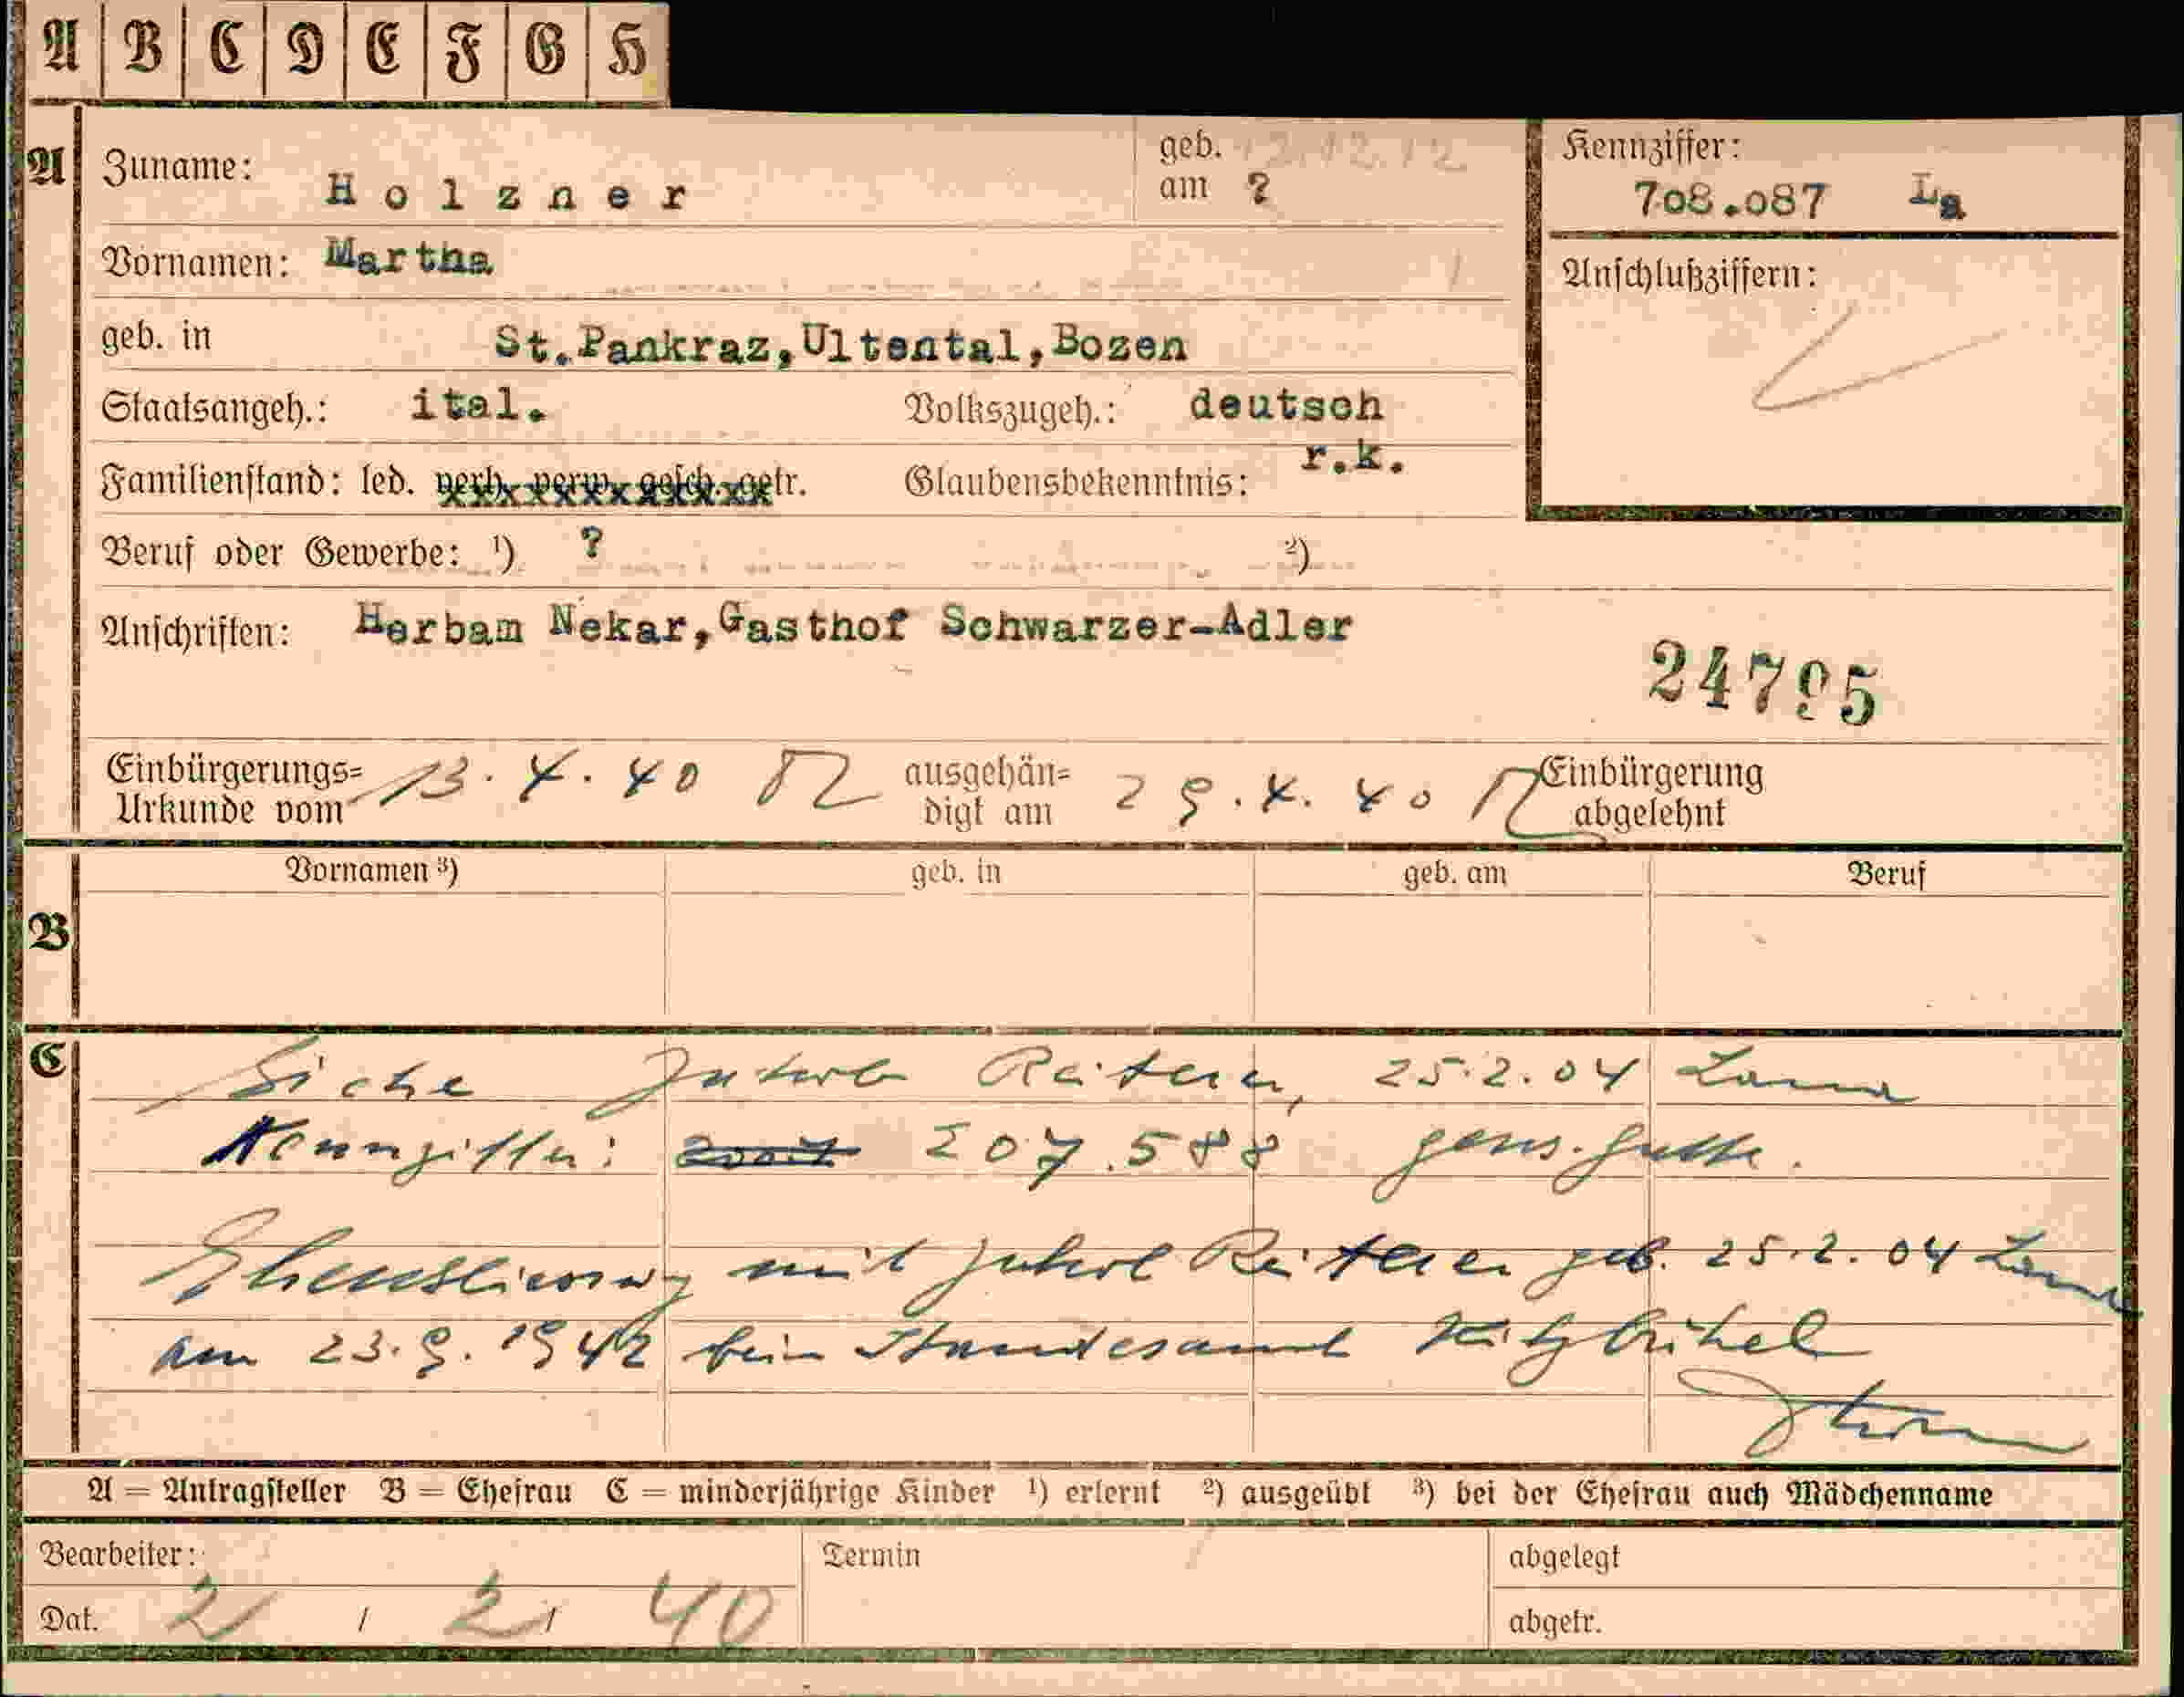 A B C D E F G H
A Zuname: Holzner geb. am 12.12.12 ? Kennziffer: 708.087 La
Vornamen: Martha Anschlußziffern:
geb. in St.Pankraz,Ultental,Bozen
Staatsangeh.: ital. Volkszugeh.: deutsch
Familienstand: led. verh. verw. gesch. getr. Glaubensbekenntnis: r.k.
Beruf oder Gewerbe: ¹) ? ²)
Anschriften: Herbam Nekar,Gasthof Schwarzer-Adler
24795
Einbürgerungs=Urkunde vom 13.4.40 ausgehän=digt am 29.4.40 Einbürgerung abgelehnt
B Vornamen ³) geb. in geb. am Beruf
C Siehe Jakob Reiterer, 25.2.04 Lana
Kennziffer: 207.588
Eheschliessung mit Jakob Reiterer geb. 25.2.04 Lana
am 23.9.1942 beim Standesamt Kitzbühel
A = Antragsteller B = Ehefrau C = minderjährige Kinder ¹) erlernt ²) ausgeübt ³) bei der Ehefrau auch Mädchenname
Bearbeiter: Termin abgelegt
Dat. 2 / 2 / 40 abgetr.